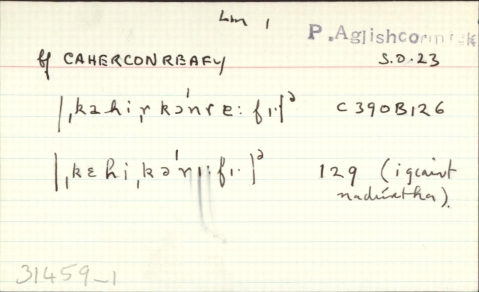 Lm 1
P. Aglishcormick
bf CAHERCONREAFY
S.D.23
|ˌkahirˌkəˈnreːfiː|² C390B126
|ˌkɛhiˌkəˈriːfiː|² 129 (i gcaint
na ndaoine
31459_1